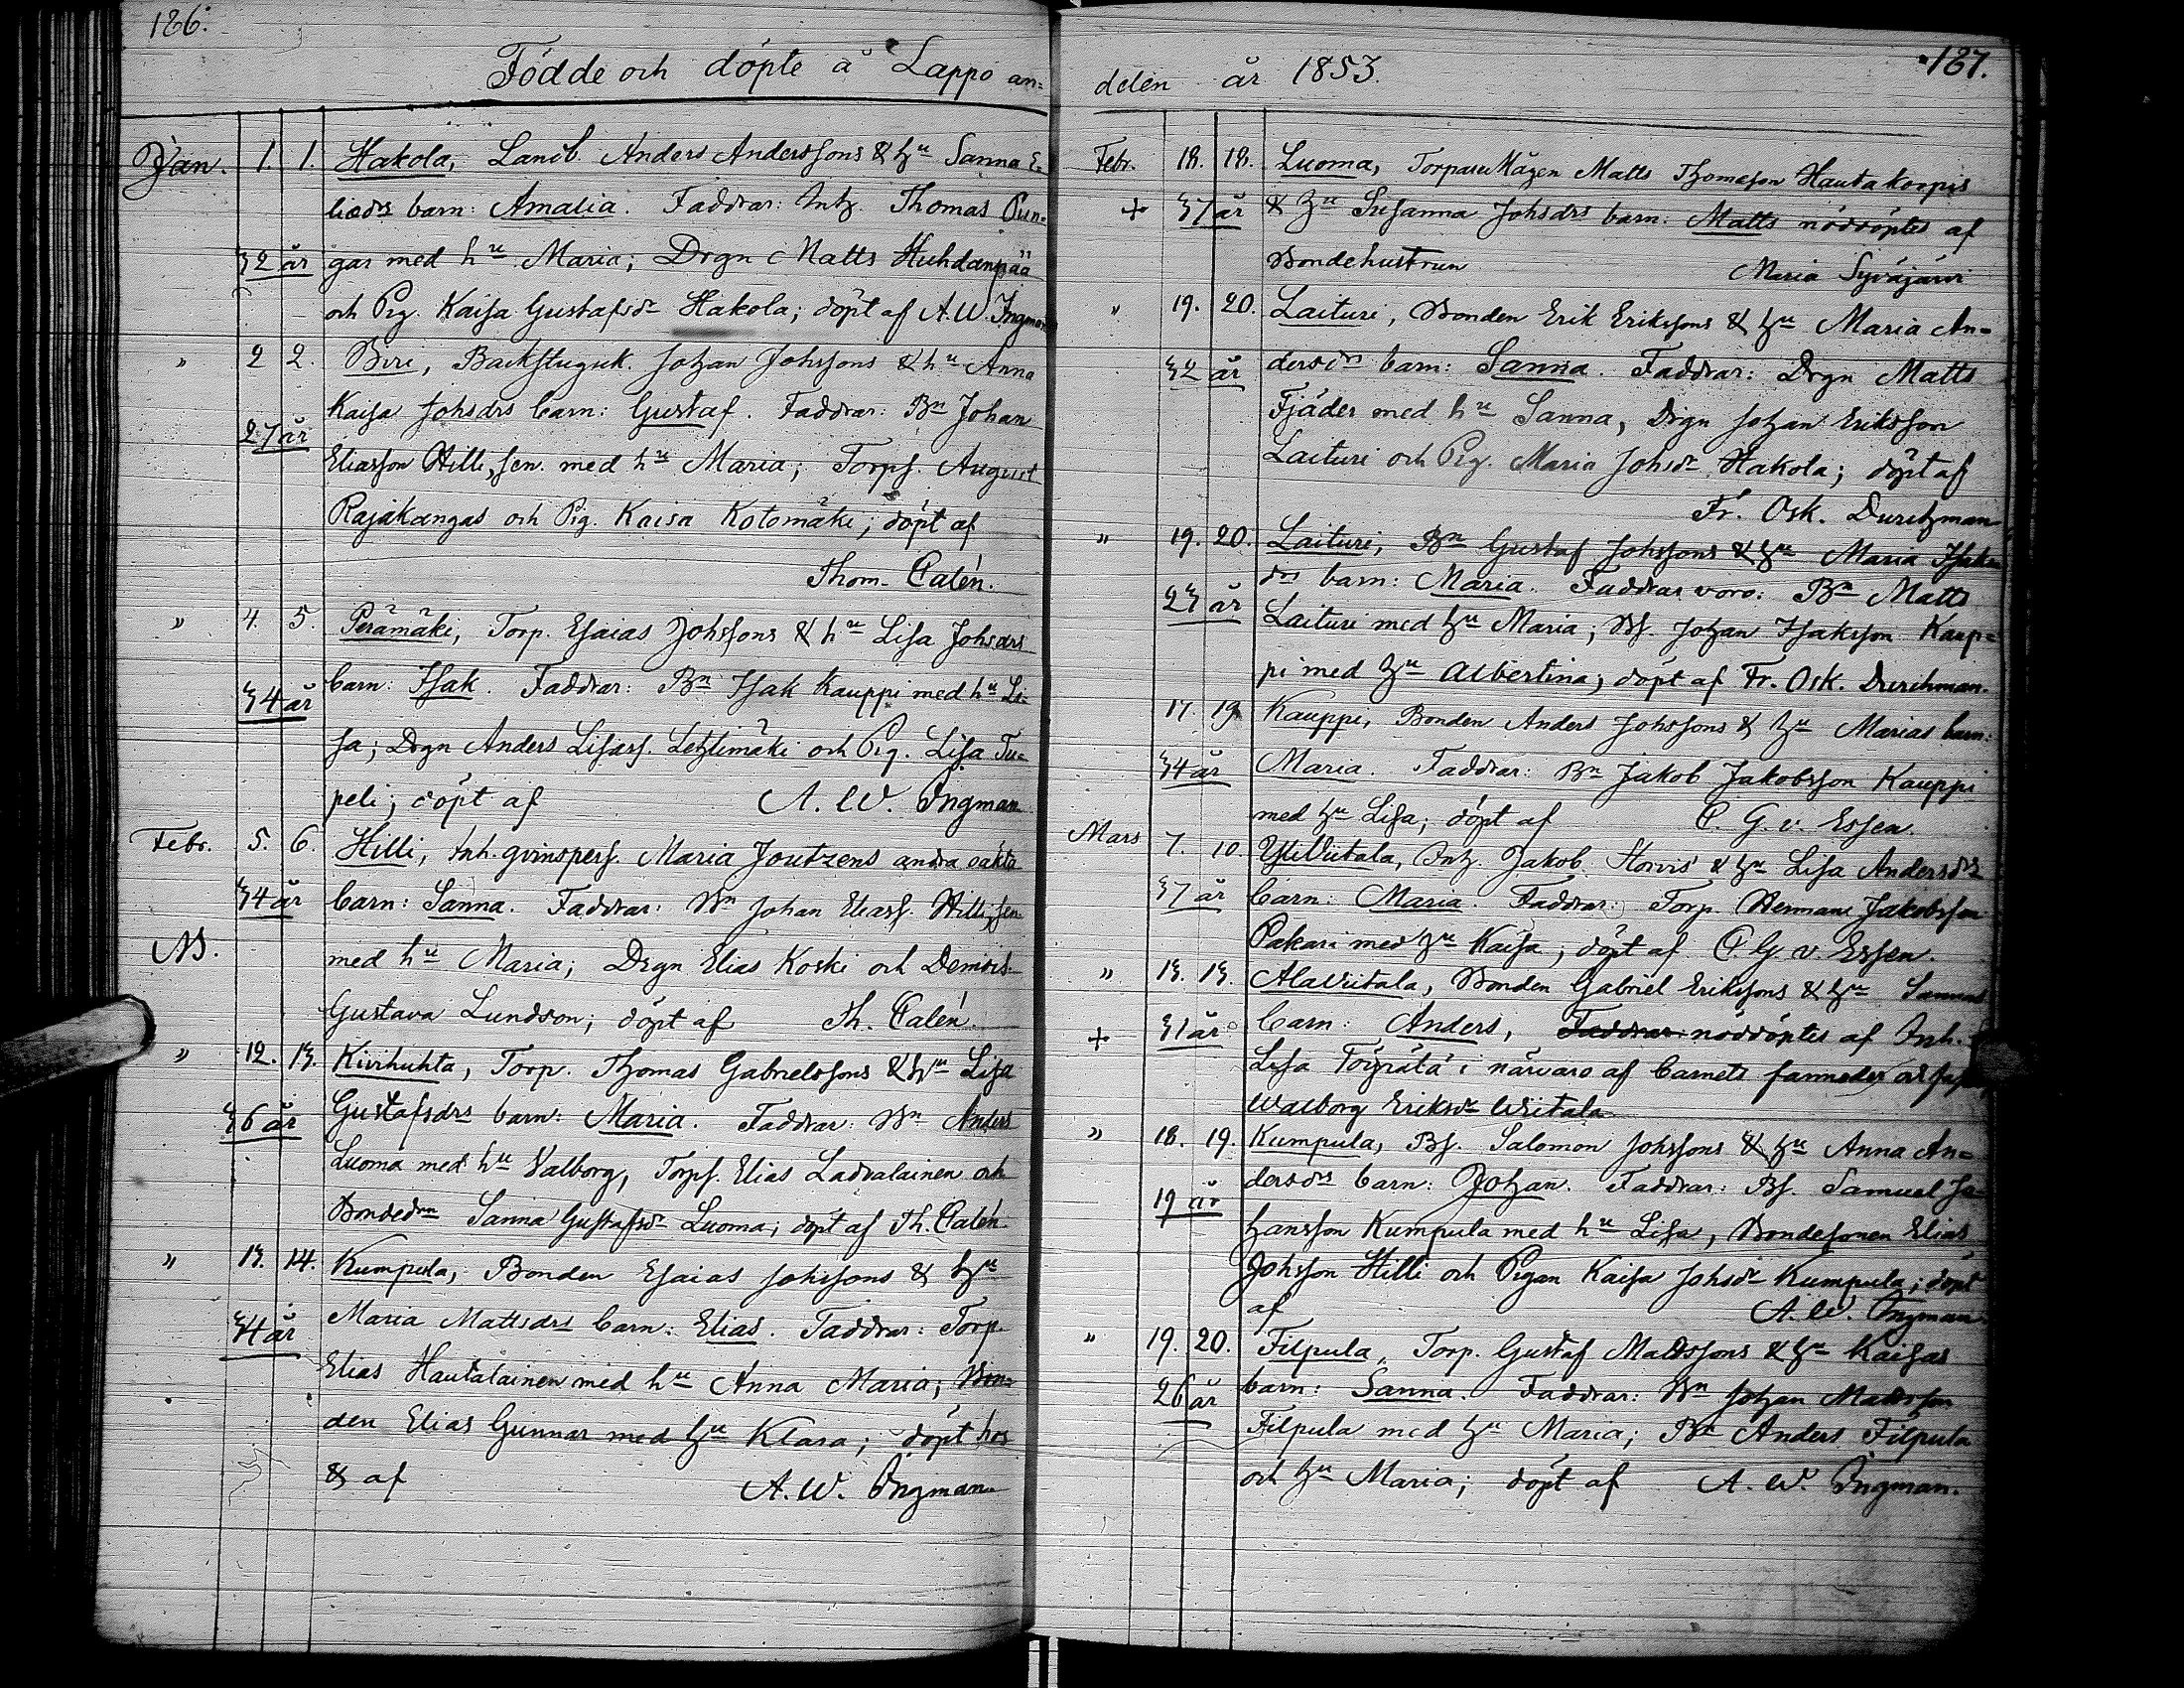 186.
Födde och döpte å Lappo an=
Jan. 1. 1. Hakola, Landb. Anders Anderssons & hu Sanna E=
liædrs barn: Amalia. Faddrar: Inh. Thomas Pun=
32 år gar med hu Maria; Drgn Matts Huhdanpää
och Pig. Kaisa Gustafsdr Hakola; döpt af A. W. Ingman
" 2 2. Biri, Backstuguk. Johan Johssons & hu Anna
Kaisa Johsdrs barn: Gustaf. Faddrar: Bn Johan
27 år
Eliasson Hilli, sen. med hu Maria; Torps. August
Rajakangas och Pig. Kaisa Kotomäki; döpt af
Thom. Calén.
" 4. 5. Perämäki, Torp. Esaias Johssons & hu Lisa Johsdrs
34 år barn: Isak. Faddrar: Bn Isak Kauppi med hu Li=
sa; Drgn Anders Lisass. Lehtimäki och Pig. Lisa Tu=
peli; döpt af A. W. Ingman
Febr. 5. 6. Hilli, Inh. qvinspers. Maria Joutzens andra oäkta
34 år barn: Sanna. Faddrar: Bn Johan Eliass. Hilli, sen.
NB. med hu Maria; Drgn Elias Koski och Demois.
Gustava Lundson; döpt af Th. Calén.
" 12. 13. Kivihuhta, Torp. Thomas Gabrielssons & hu Lisa
36 år Gustafsdrs barn: Maria. Faddrar: Bn Anders
Luoma med hu Valborg, Torps. Elias Ladvalainen och
Bondedn Sanna Gustafsdr Luoma; döpt af Th. Calén.
" 13. 14. Kumpula, Bonden Esaias Johssons & hu
34 år Maria Mattsdrs barn: Elias. Faddrar: Torp.
Elias Hautalainen med hu Anna Maria; Bon=
den Elias Gunnar med hu Klara; döpt hos
& af A. W. Ingman
187.
delen år 1853.
Febr. 18. 18. Luoma, Torpare Mågen Matts Thomason Hautakorpis
+ 37 år & hu Susanna Johsdrs barn: Matts nöddöptes af
Bondehustrun Maria Syväjärvi
" 19. 20. Laituri, Bonden Erik Erikssons & hu Maria An=
32 år dersdrs barn: Sanna. Faddrar: Drgn Matts
Fjäder med hu Sanna, Drgn Johan Eriksson
Laituri och Pig. Maria Johsdr Hakola; döpt af
Fr. Osk. Durchman
" 19. 20. Laituri, Bn Gustaf Johssons & hu Maria Isaks
23 år drs barn: Maria. Faddrar voro: Bn Matts
Laituri med hu Maria; Bs. Johan Isaksson Kaup=
pi med hu Albertina; döpt af Fr. Osk. Durchman.
17. 19. Kauppi, Bonden Anders Johssons & hu Marias barn:
34 år Maria. Faddrar: Bn Jakob Jakobsson Kauppi
med hu Lisa; döpt af C. G. v. Essen.
Mars 7. 10. YliViitala, Inh. Jakob Storvis & hu Lisa Andersdrs
37 år barn: Maria. Faddrar: Torp. Hermani Jakobsson
Pakari med hu Kaisa; döpt af C. G. v. Essen.
" 13. 13. AlaViitala, Bonden Gabriel Erikssons & hu Sannas
+ 31 år barn: Anders, Faddrar: nöddöptes af Inh.
Lisa Töyrätä i närvaro af barnets farmoder
Walborg Eriksdr Wiitala
" 18. 19. Kumpula, Bs. Salomon Johssons & hu Anna An=
19 år dersdrs barn: Johan. Faddrar: Bs. Samuel Jo=
hansson Kumpula med hu Lisa, Bondesonen Elias
Johsson Hilli och Pigan Kaisa Johsdr Kumpula; döpt
af A. W. Ingman.
" 19. 20. Filpula, Torp. Gustaf Mattssons & hu Kaisas
26 år barn: Sanna. Faddrar: Bn Johan Mattsson
Filpula med hu Maria; Bn Anders Filpula
och hu Maria; döpt af A. W. Ingman.